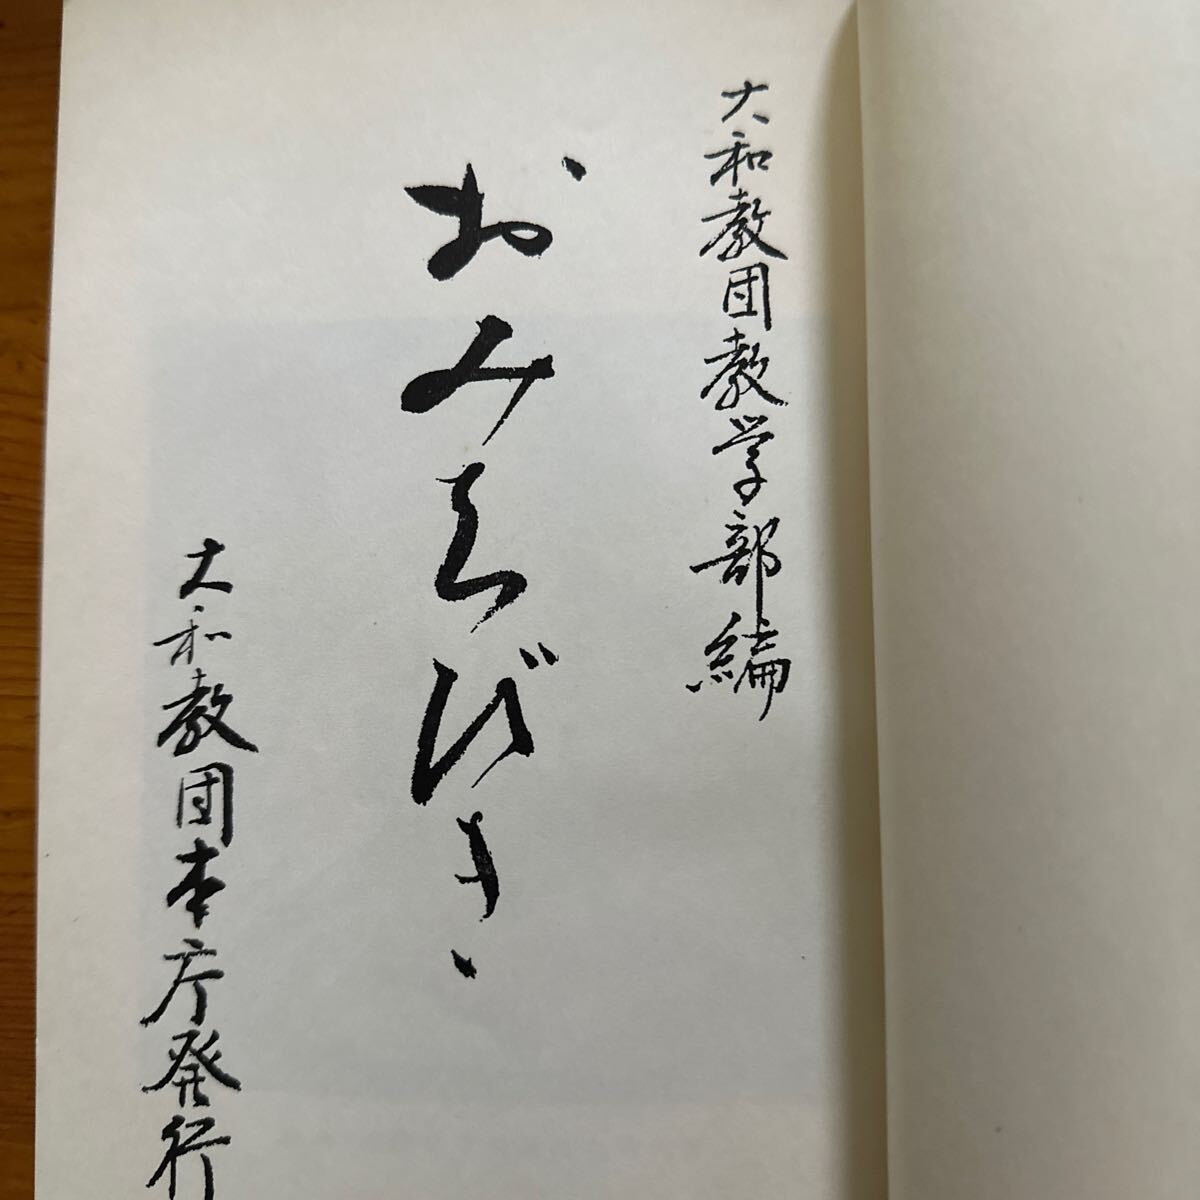 大和教団教学部編
おみちびき
大和教団本庁発行